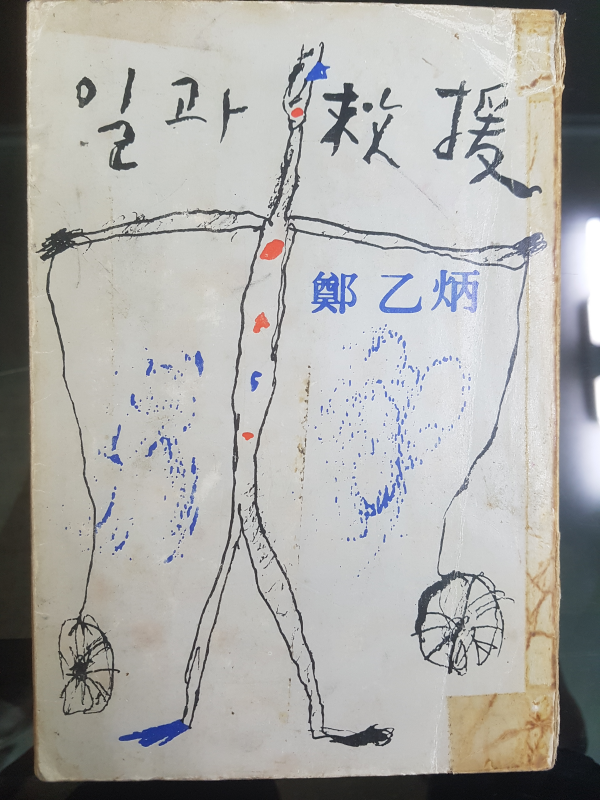 일과 救援
鄭乙炳